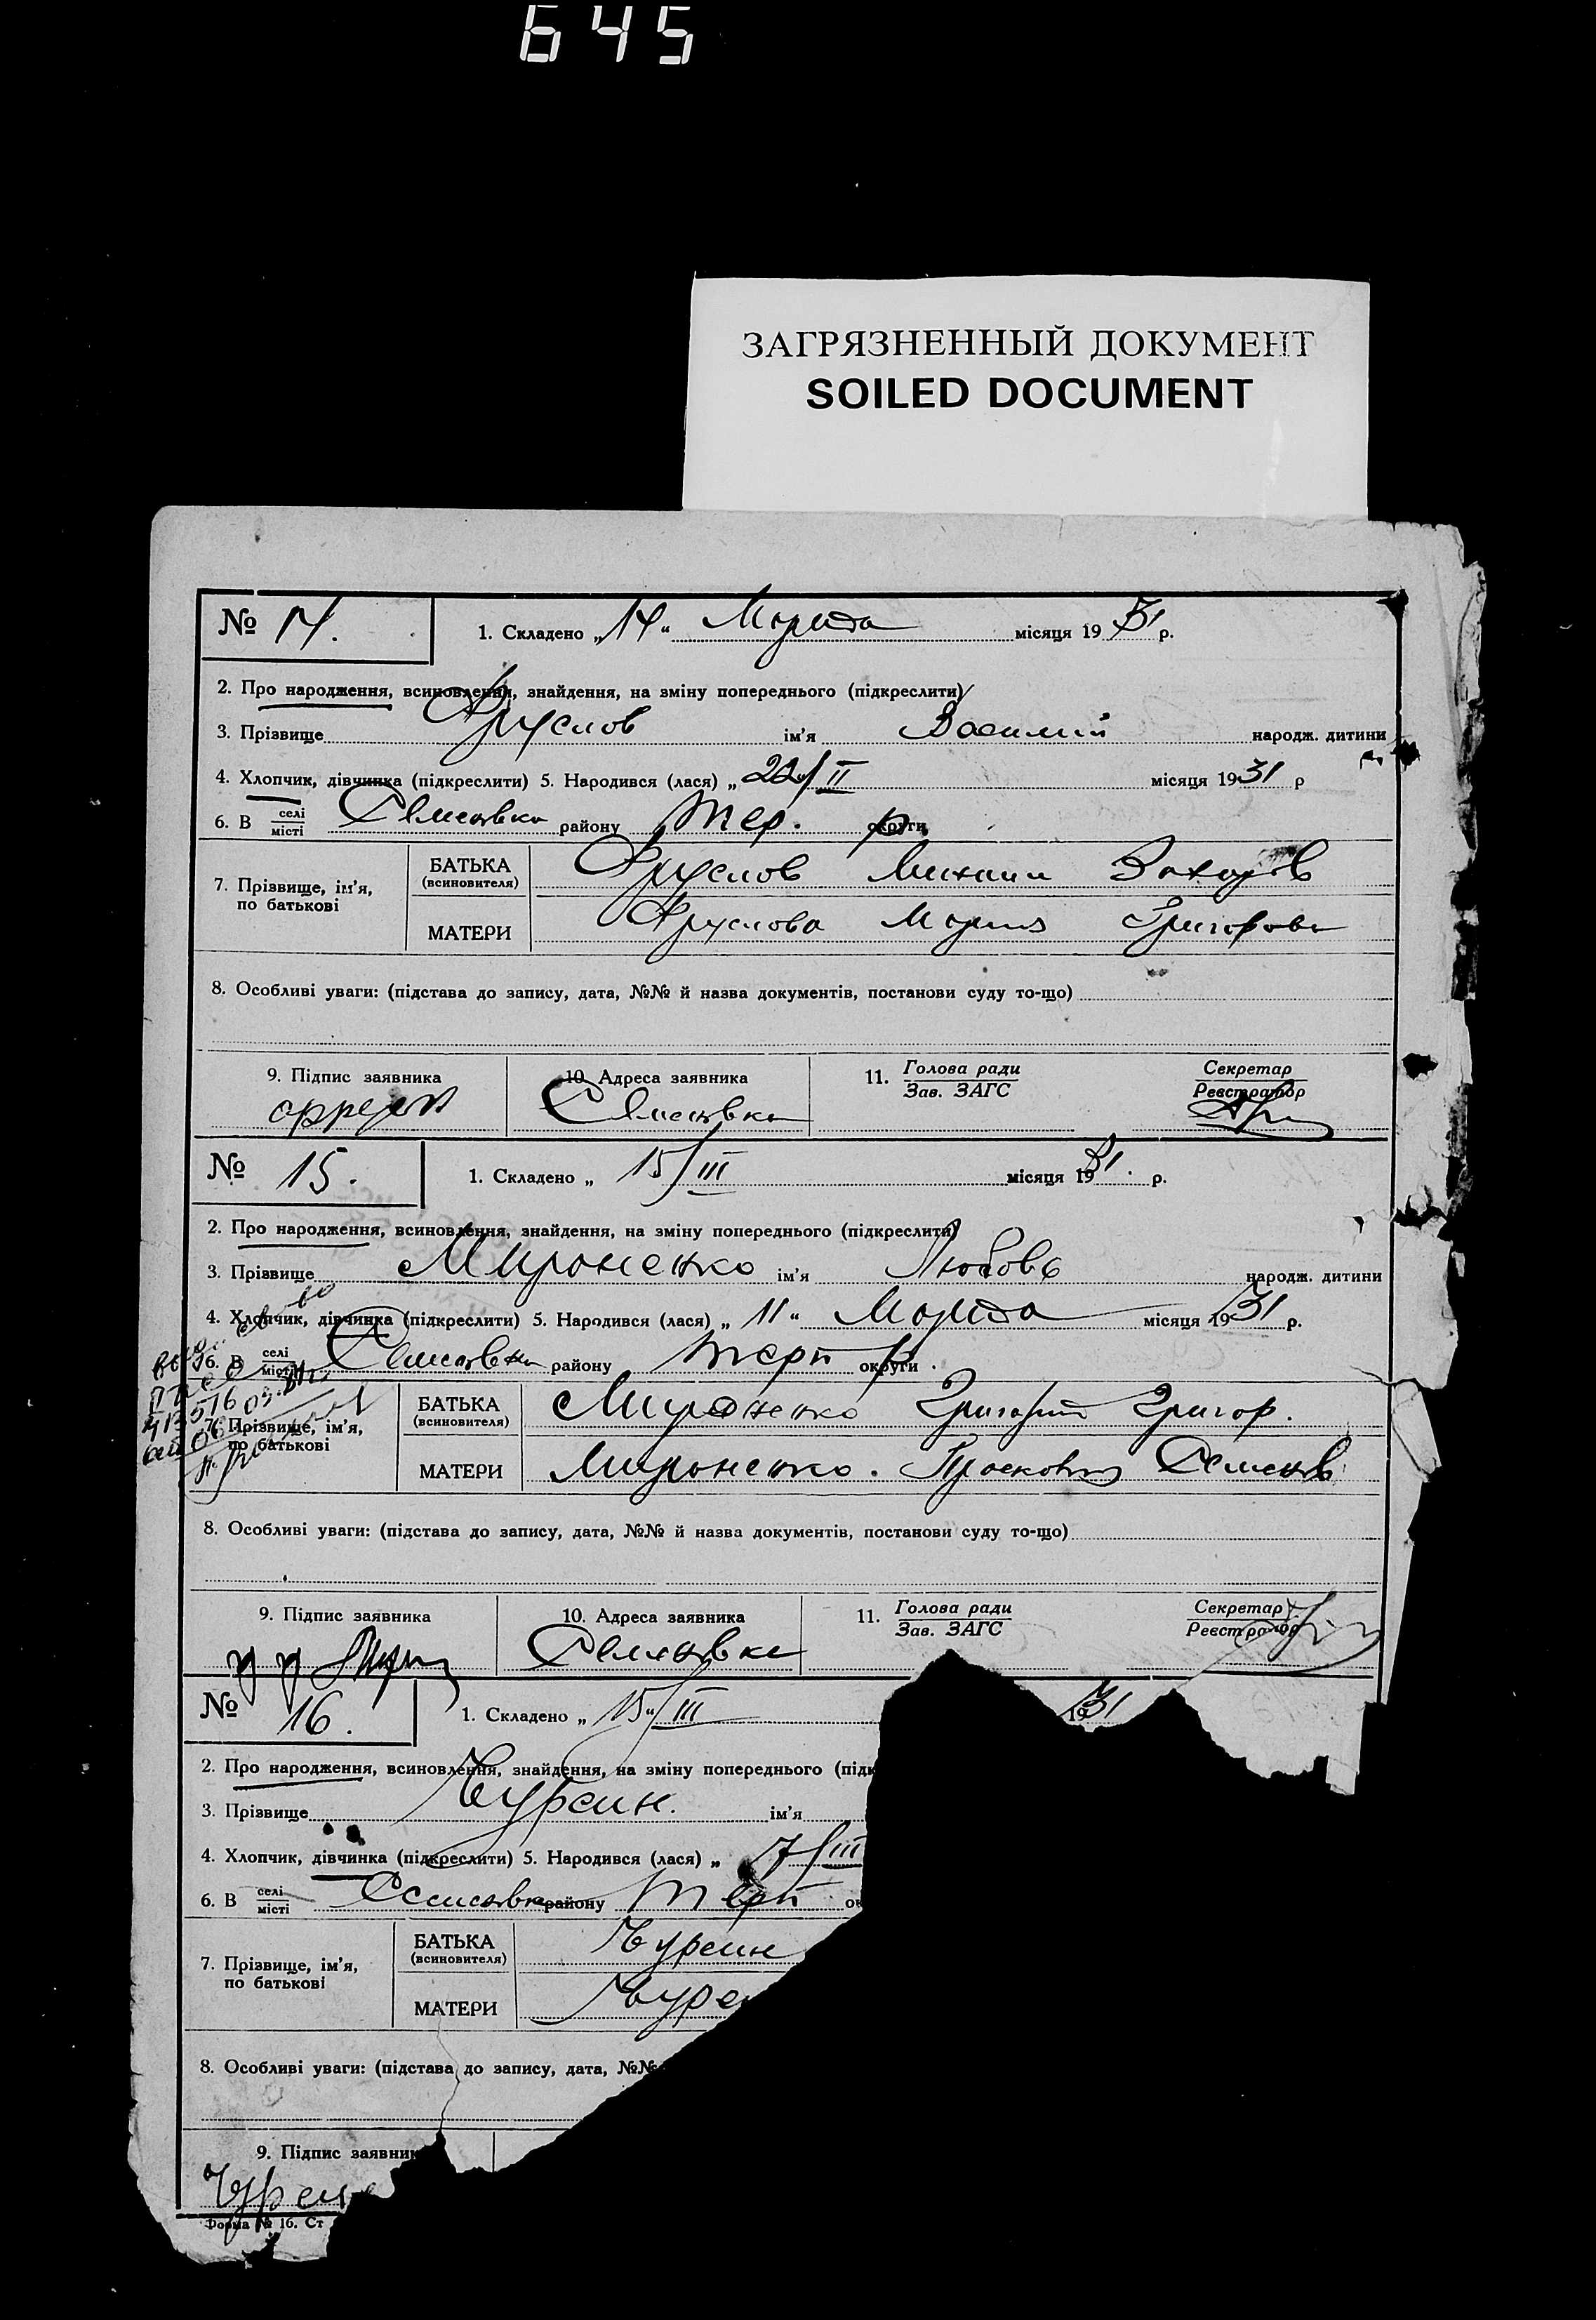 645
ЗАГРЯЗНЕННЫЙ ДОКУМЕНТ
SOILED DOCUMENT
№ 14.
1. Складено „14“ Марта місяця 1931 р.
2. Про народження, всиновлення, знайдення, на зміну попереднього (підкреслити)
3. Прізвище Фруслов ім'я Василий народж. дитини
4. Хлопчик, дівчинка (підкреслити) 5. Народився (лася) „22/II місяця 1931 р
6. В селі/місті Семеновка району Тер. округи
7. Прізвище, ім'я, по батькові
БАТЬКА (всиновителя) Фруслов Михаил Захаров
МАТЕРИ Фруслова Мария Григоровн
8. Особливі уваги: (підстава до запису, дата, №№ й назва документів, постанови суду то-що)
9. Підпис заявника
10. Адреса заявника Семеновка
11. Голова ради / Зав. ЗАГС
Секретар / Реєстратор
№ 15.
1. Складено „ 15/III місяця 1931. р.
2. Про народження, всиновлення, знайдення, на зміну попереднього (підкреслити)
3. Прізвище Мироненко ім'я Любовь народж. дитини
4. Хлопчик, дівчинка (підкреслити) 5. Народився (лася) „ 11“ Марта місяця 1931 р.
6. В селі/місті Семеновка району Терп округи
7. Прізвище, ім'я, по батькові
БАТЬКА (всиновителя) Мироненко Григорий Григор.
МАТЕРИ Мироненко. Просковия Семенов
8. Особливі уваги: (підстава до запису, дата, №№ й назва документів, постанови суду то-що)
9. Підпис заявника
10. Адреса заявника Семеновка
11. Голова ради / Зав. ЗАГС
Секретар / Реєстратор
№ 16.
1. Складено „ 15“/III 1931
2. Про народження, всиновлення, знайдення, на зміну попереднього (підк
3. Прізвище Чурсин. ім'я
4. Хлопчик, дівчинка (підкреслити) 5. Народився (лася) „ 7/III
6. В селі/місті Семеновка району Терп ок
7. Прізвище, ім'я, по батькові
БАТЬКА (всиновителя) Чурсин
МАТЕРИ Чурси
8. Особливі уваги: (підстава до запису, дата, №№
9. Підпис заявник
Чурси
Форма № 16. Ст